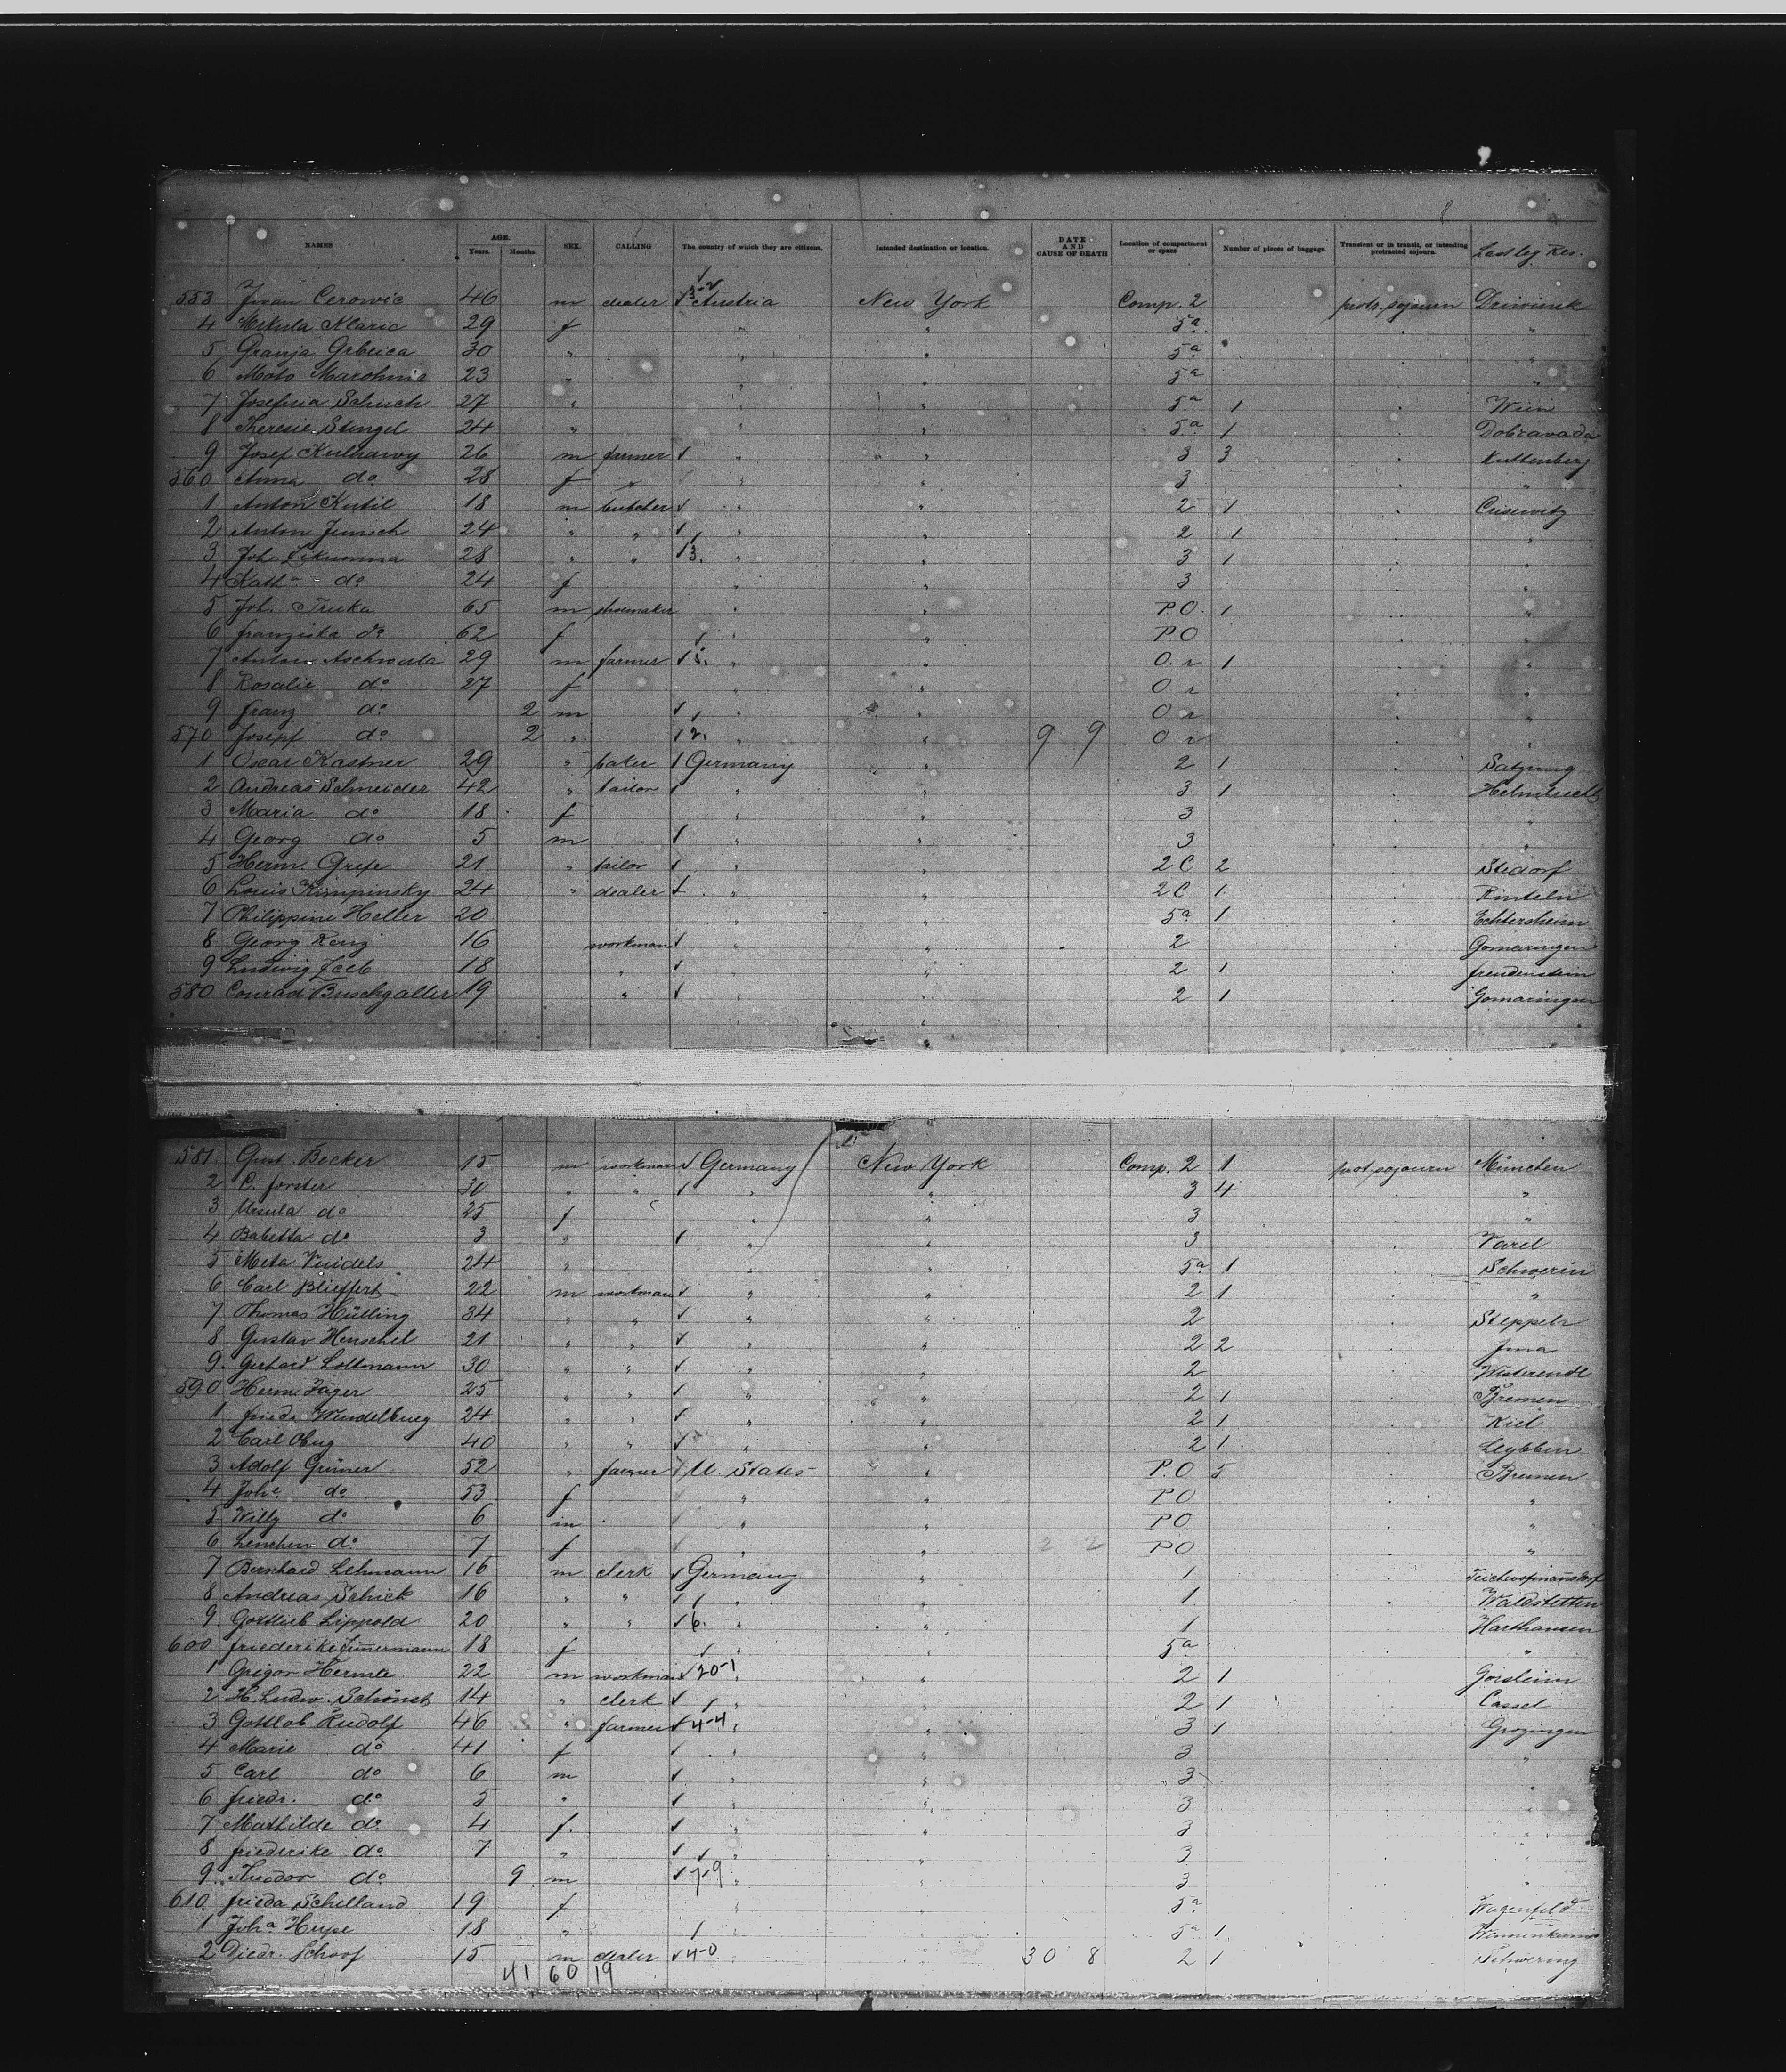 NAMES AGE. Years. Months. SEX. CALLING The country of which they are citizens. Intended destination or location. DATE AND CAUSE OF DEATH Location of compartment or space Number of pieces of baggage. Transient or in transit, or intending protracted sojourn. Last leg. Res.
553 Iwan Cerowic 46 m dealer Austria New York Comp. 2 protr. sojourn
4 Mikula Klaric 29 f " " 5a "
5 Granja Grbcica 30 " " " 5a "
6 Mato Marohnic 23 " " " 5a "
7 Josefina Schuch 27 " " " 5a 1 Wien
8 Therese Stengel 24 " " " 5a 1 Dobravada
9 Josef Kulhawy 26 m farmer " " 3 3 Kuttenberg
560 Anna do 28 f " " 3 "
1 Anton Kutil 18 m butcher " " 2 1
2 Anton 24 " " " " 2 1 "
3 Joh. 28 " " 3. " " 3 1 "
4 Kath. do 24 f " " 3 "
5 Joh. Truka 65 m shoemaker " " P.O. 1 "
6 Franziska do 62 f " " P.O "
7 Anton 29 m farmer " " O. r 1 "
8 Rosalie do 27 f " " O r "
9 Franz do 2 m " " O r "
570 Josepf do 2 " 2. " " 9 9 O r "
1 Oscar Kastner 29 " baker Germany " 2 1 Satzung
2 Andreas Schneider 42 " tailor " " 3 1 Helmbrechts
3 Maria do 18 f " " 3 "
4 Georg do 5 m " " 3 "
5 Herm. Grefe 21 " tailor " " 2 C 2 Stedorf
6 Louis Kimpinsky 24 " dealer " " 2 C 1 Rinteln
7 Philippine Heller 20 " " 5a 1 Echtersheim
8 Georg Renz 16 workman " " 2 Gomaringen
9 Ludwig 18 " " " 2 1 Freudenstein
580 Conrad Buschgaller 19 " " " 2 1 Gomaringen
581 Gust. Becker 15 m workman Germany New York Comp. 2 1 prot. sojourn München
2 C. Forster 30 " " " " 3 4 "
3 Ursula do 25 f " " 3 "
4 Babetta do 3 " " " 3 Varel
5 Meta 24 " " " 5a 1 Schwerin
6 Carl Blieffert 22 m workman " " 2 1 "
7 Thomas Hülling 34 " " " " 2
8 Gustav Henschel 21 " " " " 2 2 Jena
9. Gerhard Loltmann 30 " " " " 2 Westerende
590 Herm. Jäger 25 " " " " 2 1 Bremen
1 Friedr. Wendelburg 24 " " " " 2 1 Kiel
2 Carl 40 " " " " 2 1
3 Adolf Grüner 52 " farmer U. States " P.O 5 Bremen
4 Johe do 53 f " " P O "
5 Willy do 6 m " " P O "
6 Lenchen do 7 f " " 2 2 P O "
7 Bernhard Lehmann 16 m clerk Germany " 1
8 Andreas Schick 16 " " " " 1 Waldstetten
9. Gottlieb Lippold 20 " " 6. " " 1 Harthausen
600 Friederike Zimmermann 18 f " " 5a "
1 Gregor Hermle 22 m workman 20-1 " " 2 1
2 H. Ludw. 14 " clerk " " 2 1 Cassel
3 Gottlob Rudolf 46 " farmer 4-4 " " 3 1 Grozingen
4 Marie do 41 f " " 3 "
5 Carl do 6 m " " 3 "
6 Friedr. do 5 " " " 3 "
7 Mathilde do 4 f. " " 3 "
8 Friederike do 7 " " " 3 "
9. Theodor do 9 m 7-9 " " 3 "
610 Frieda Schelland 19 f " " 5a Wagenfeld
1 Joha Heyse 18 " " " 5a 1
2 Diedr. Schoof 15 m dealer 4-0 " " 30 8 2 1
41 60 19